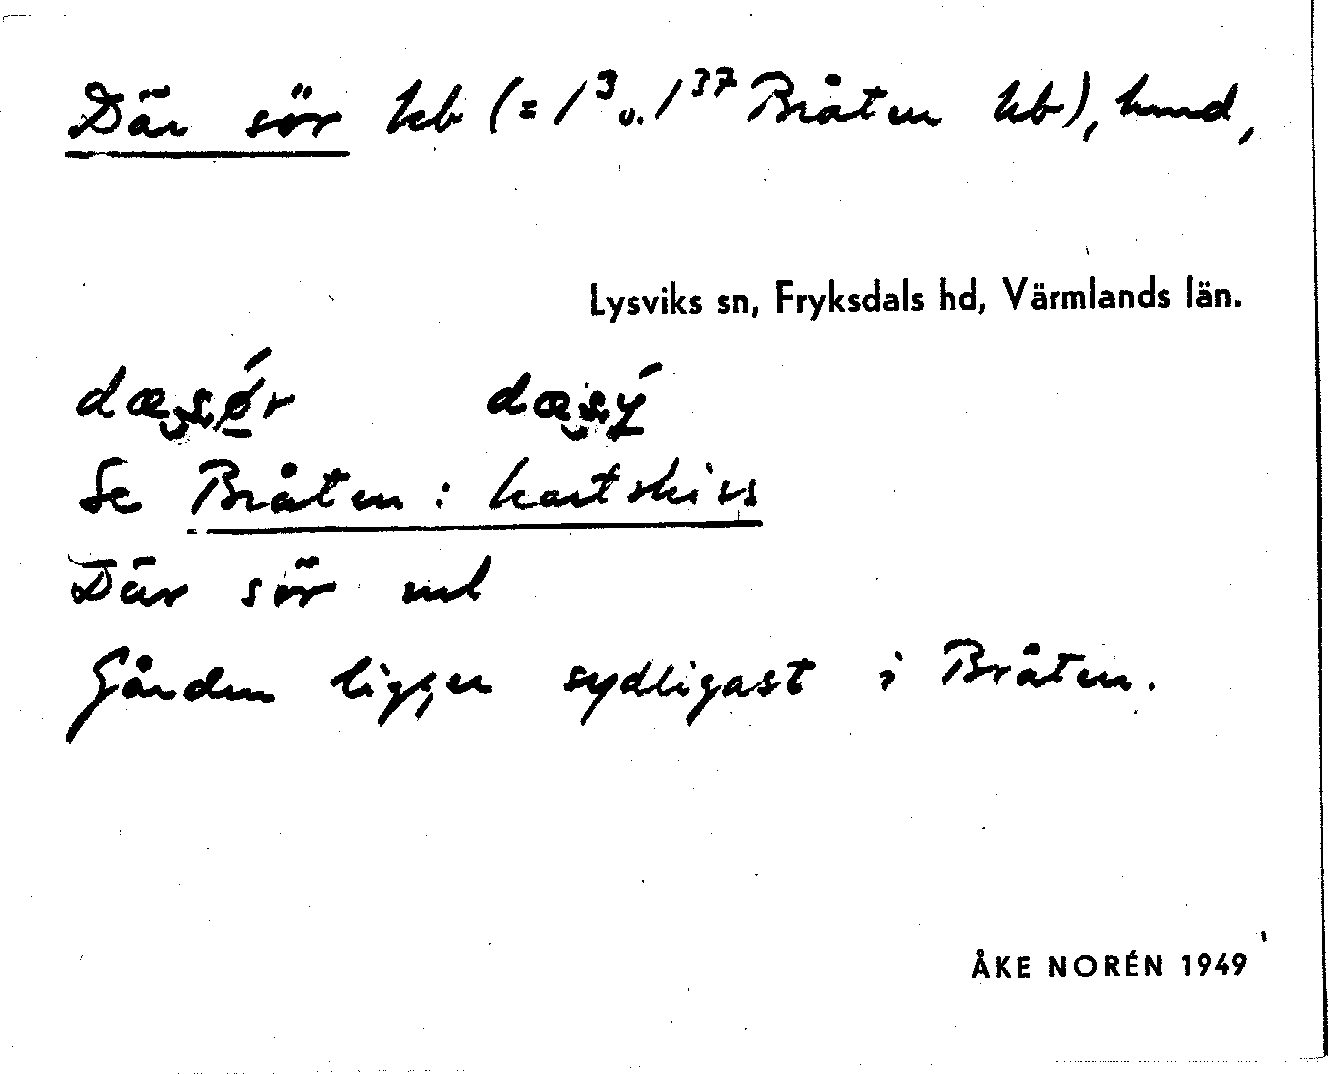 Där sör kb (= 1³ o. 1³⁷ Bråten kb), hmd,
Lysviks sn, Fryksdals hd, Värmlands län.
dæsǿr dæsý
Se Bråten: kartskiss
Där sör ml
Gården ligger sydligast i Bråten.
ÅKE NORÉN 1949